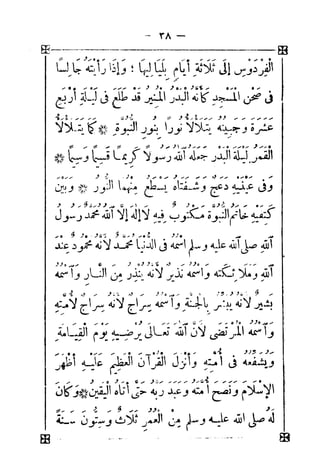 — ٣٨ —
الْفِرْدَوْسِ إِلَى ثَلَاثَةِ أَيَّامٍ بِلَيَالِيهَا ؛ وَإِذَا رَأَيْتَهُ جَالِسًا
فِى صَحْنِ الْمَسْجِدِ كَأَنَّهُ الْبَدْرُ الْمُنِيرُ قَدْ طَلَعَ فِى لَيْلَةِ أَرْبَعَ
عَشْرَةَ وَجَبِينُهُ يَتَلَأْلَأُ نُورًا بِنُورِ النُّبُوَّةِ * كَمَا يَتَلَأْلَأُ
الْقَمَرُ لَيْلَةَ الْبَدْرِ جَعَلَهُ اللهُ رَسُولًا كَرِيمًا قَسِيمًا وَسِيمًا *
وَفِى عَيْنَيْهِ دَعَجٌ وَشَفَتَاهُ يَسْطَعُ مِنْهُمَا النُّورُ * وَبَيْنَ
كَتِفَيْهِ خَاتَمُ النُّبُوَّةِ مَكْتُوبٌ فِيهِ لَا إِلٰهَ إِلَّا اللهُ مُحَمَّدٌ رَسُولُ
اللهِ صلى الله عليه وسلم اسْمُهُ فِى الدُّنْيَا مُحَمَّدٌ لِأَنَّهُ مَحْمُودٌ عِنْدَ
اللهِ وَمَلَائِكَتِهِ وَاسْمُهُ نَذِيرٌ لِأَنَّهُ يُنْذِرُ مِنَ النَّارِ وَاسْمُهُ
بَشِيرٌ لِأَنَّهُ يُبَشِّرُ بِالْجَنَّةِ وَاسْمُهُ سِرَاجٌ لِأَنَّهُ سِرَاجٌ لِأُمَّتِهِ
وَاسْمُهُ الْمُرْتَضَى لِأَنَّ اللهَ تَعَالَى يُرْضِيهِ يَوْمَ الْقِيَامَةِ
وَيُشَفِّعُهُ فِى أُمَّتِهِ وَأَنْزَلَ الْقُرْآنَ الْعَظِيمَ عَلَيْهِ أَظْهَرَ
الْإِسْلَامَ وَنَصَحَ أُمَّتَهُ وَعَبَدَ رَبَّهُ حَتَّى أَتَاهُ الْيَقِينُ * وَكَانَ
لَهُ صلى الله عليه وسلم مِنَ الْعُمُرِ ثَلَاثٌ وَسِتُّونَ سَنَةً